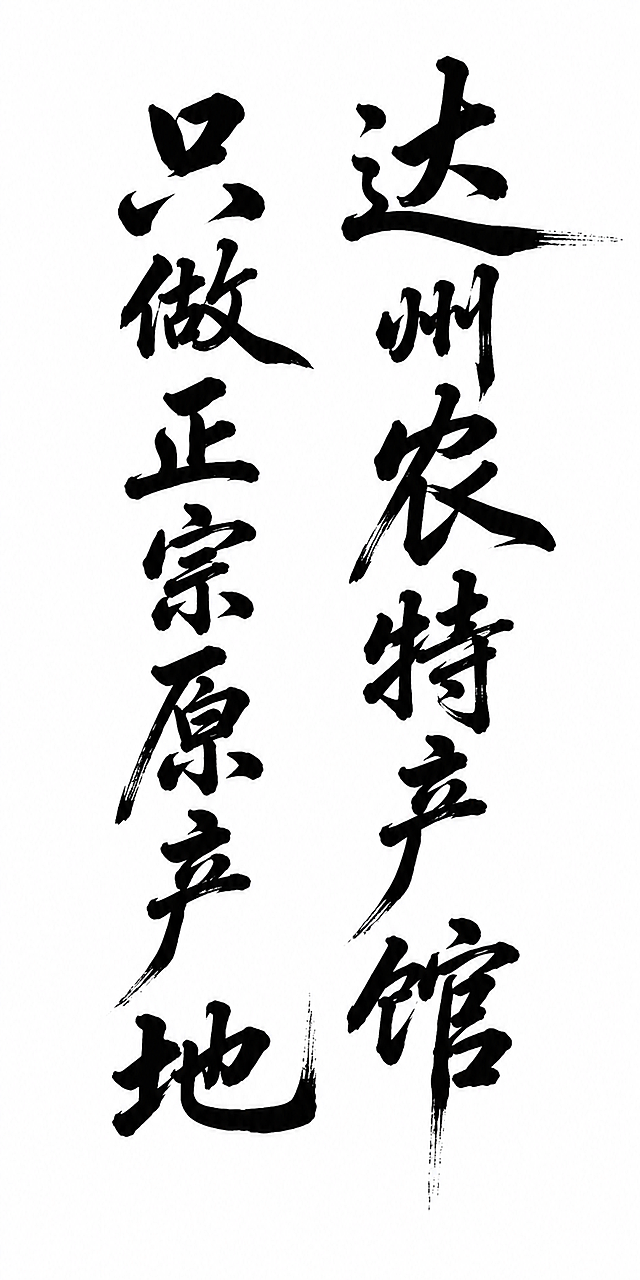 达州农特产馆
只做正宗原产地